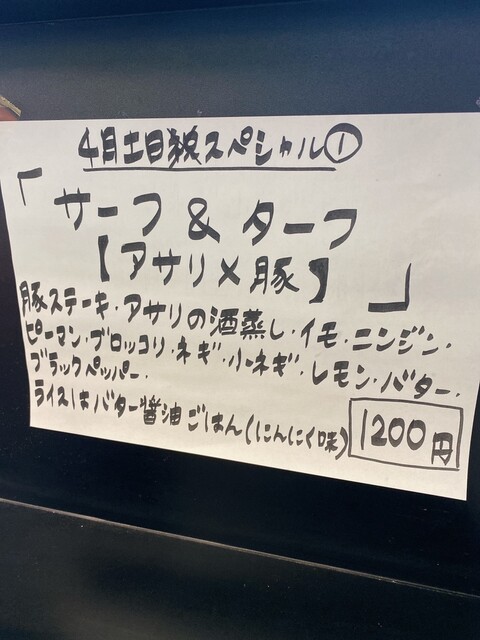 4月土日祝スペシャル①
「サーフ & ターフ
【アサリ×豚】」
豚ステーキ・アサリの酒蒸し・イモ・ニンジン・
ピーマン・ブロッコリ・ネギ・小ネギ・レモン・バター・
ブラックペッパー・
ライスはバター醤油ごはん(にんにく味) 1200円